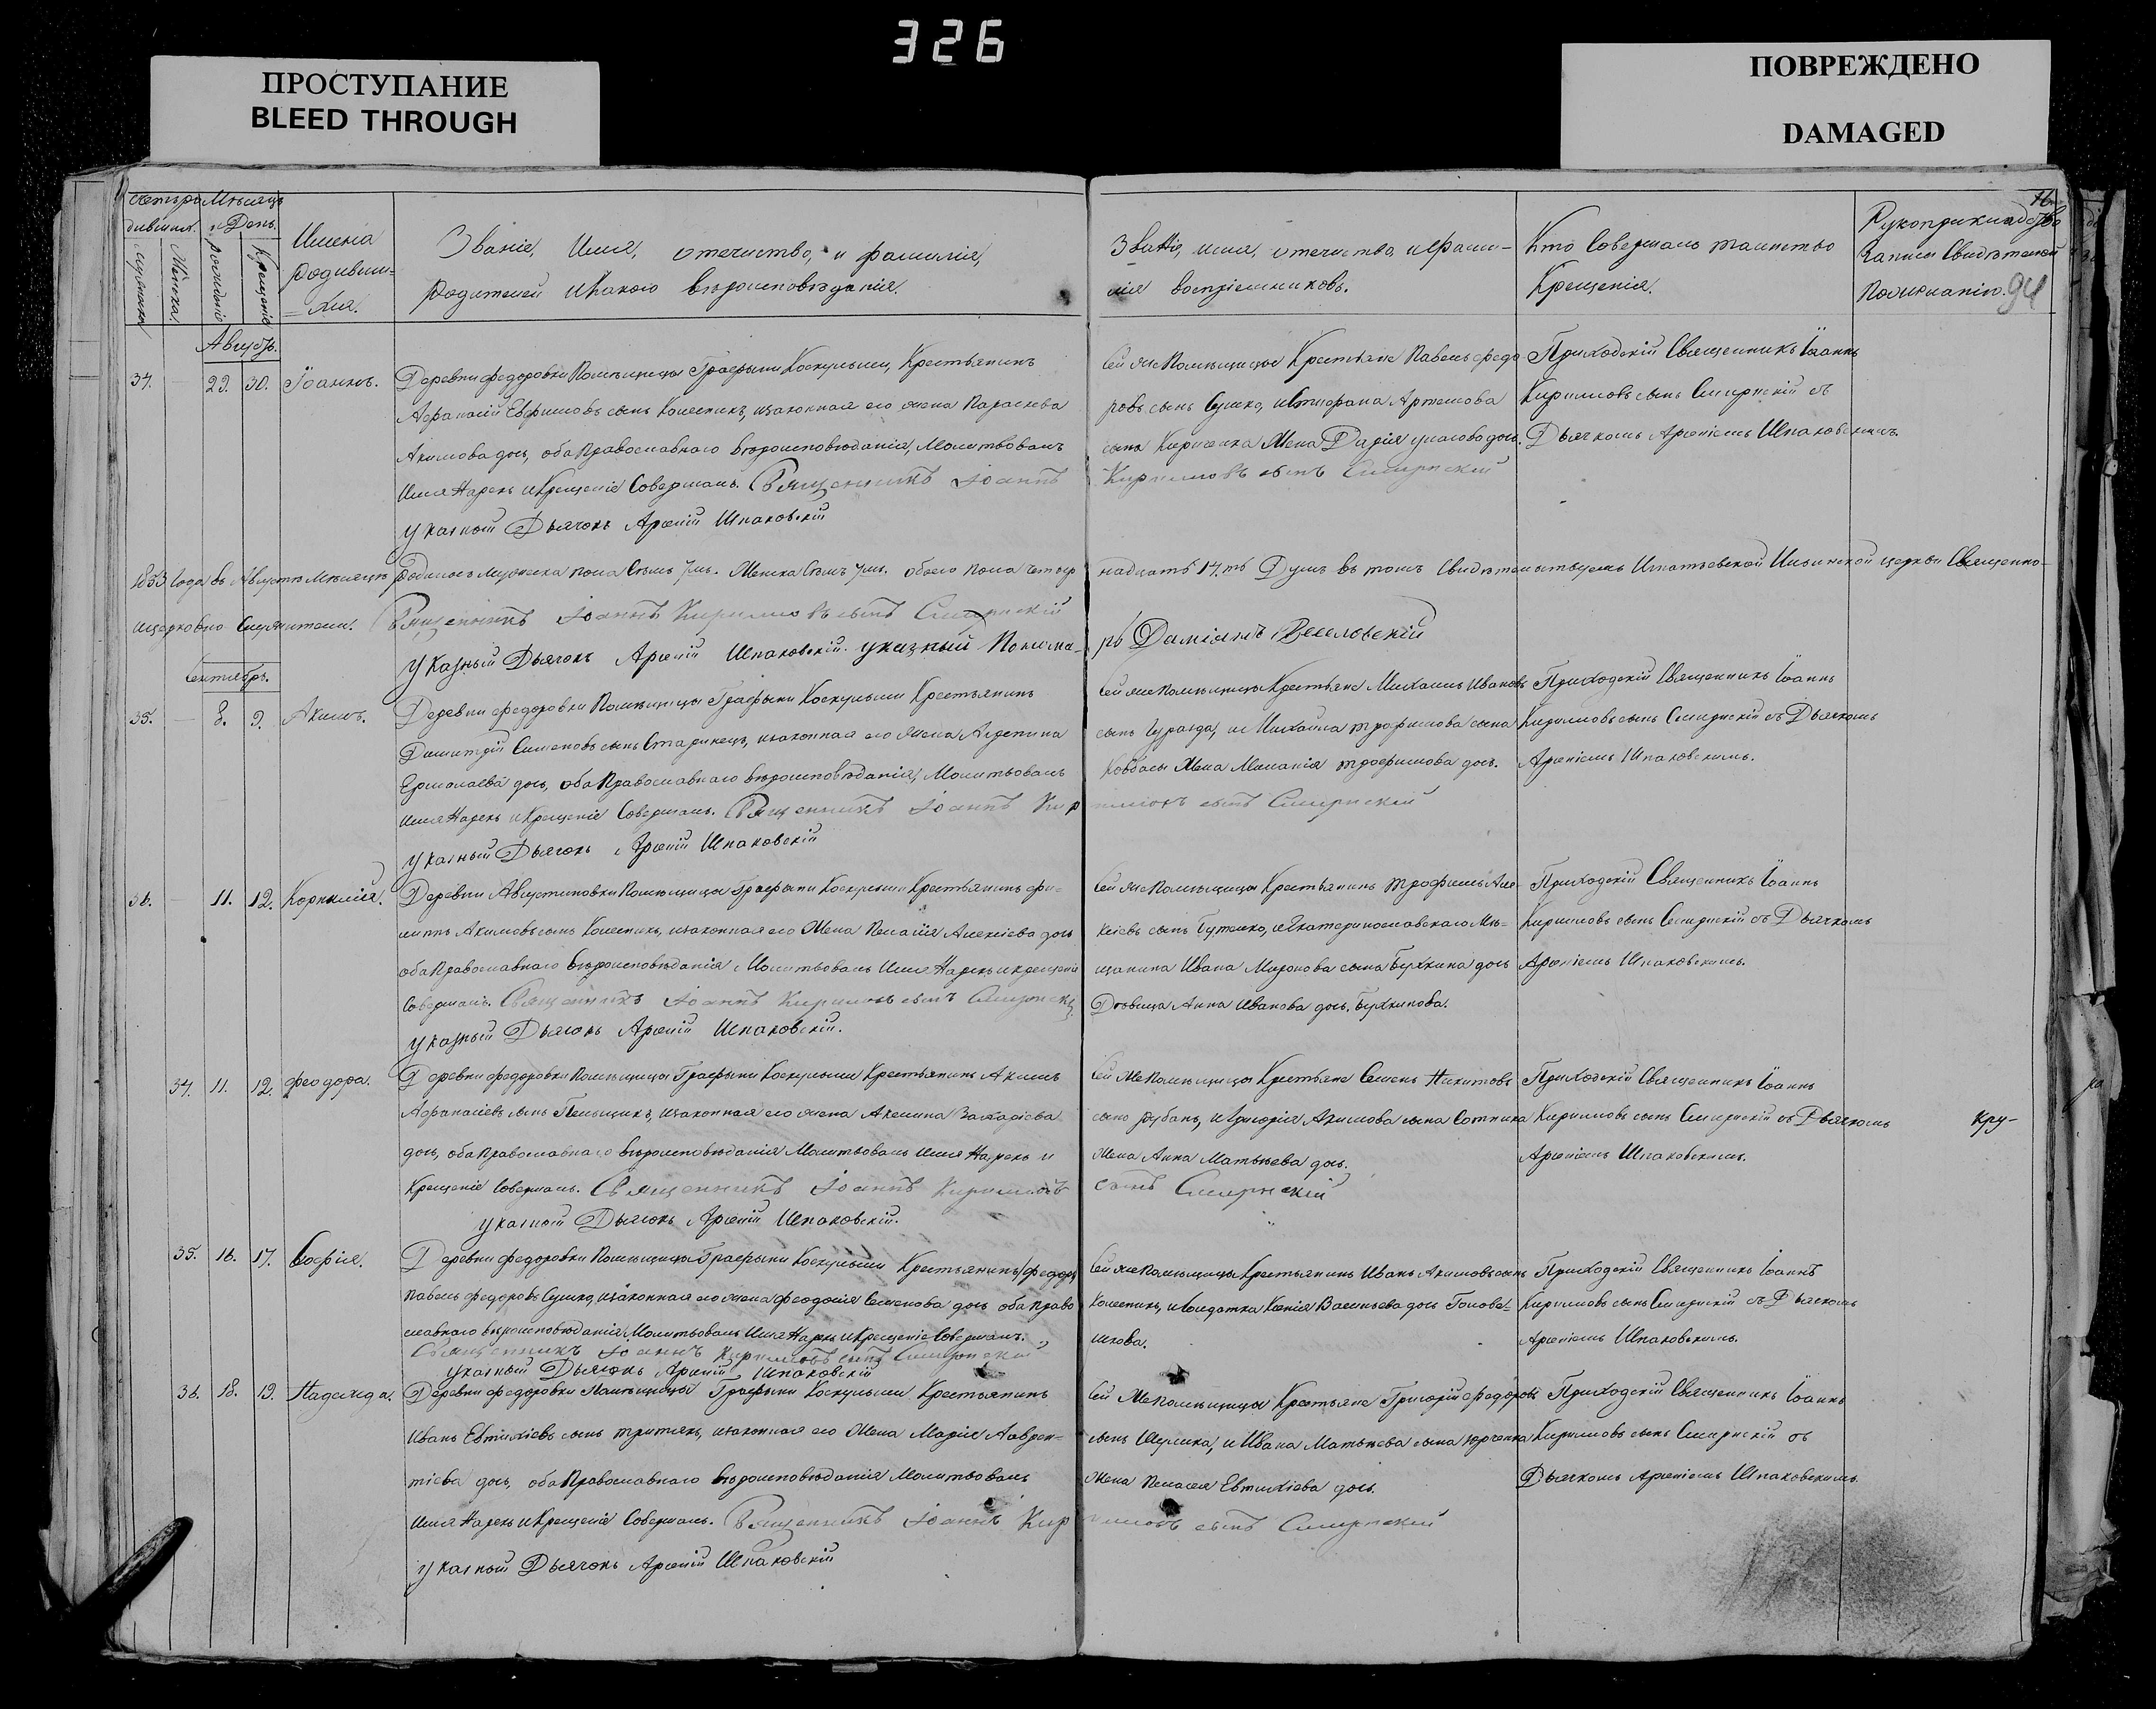 326
ПРОСТУПАНИЕ
BLEED THROUGH
ПОВРЕЖДЕНО
DAMAGED
Мѣсяцъ
и День.
Имена
родивши=
=хся.
Званіе, Имя, отечество, и фамилія,
родителей и какого вѣроисповѣданія.
Званіе, имя, отечество, и фами-
лія воспріемниковъ.
Кто совершалъ таинство
Крещенія.
Рукоприкладство
Записи Свидѣтелей
по желанію.
94
Августъ.
29. 30. Іоаннъ.
Деревни Федоровки Помѣщицы Графыни Крестьянинъ
сынъ Колесникъ, и законная его жена Параскева
Акимова дочь, оба Православнаго вѣроисповѣданія, Молитвовалъ
Имя Нарекъ и Крещеніе Совершалъ. Священникъ Іоаннъ
Указной Дьячокъ Арсеній Шпаковскій
Сей же Помѣщицы Крестьяне Павелъ Федо
ровъ сынъ Сушко, и Артемова
сына Жена Дарія дочь.
Кириловъ сынъ Смирнскій
Приходскій Священникъ Іоаннъ
Кириловъ сынъ Смирнскій съ
Дьячкомъ Арсеніемъ Шпаковскимъ.
1853 Года въ Августѣ Мѣсяцѣ Родилось мужеска пола Семь 7мь. Женска Семъ 7мь. обоего пола четыр
надцать 14.ть Душъ въ томъ Свидѣтельствуемъ Игнатьевской Ильинской церкви Священно-
и церковно-служители. Священникъ Іоаннъ Кириловъ сынъ Смирнскій
Указный Дьячокъ Арсеній Шпаковскій. указный Понома-
рь Даміанъ Веселовскій
Сентябрь.
35. 8. 9. Акимъ.
Деревни Федоровки Помѣщицы Графыни Крестьянинъ
Димитрій Симеоновъ сынъ Старинецъ, и законная его жена Агрепина
Ермолаева дочь, оба Православнаго вѣроисповѣданія, Молитвовалъ
Имя Нарекъ и Крещеніе Совершалъ. Священникъ Іоаннъ Кир
Указный Дьячокъ Арсеній Шпаковскій
Сей же Помѣщицы Крестьяне Михаилъ Ивановъ
сынъ и Михаила Трофимова сына
Ковбасы Жена Меланія Трофимова дочь.
иловъ сынъ Смирнскій
Приходскій Священникъ Іоаннъ
Кириловъ сынъ Смирнскій съ Дьячкомъ
Арсеніемъ Шпаковскимъ.
36. 11. 12. Корнилія.
Деревни Августиновки Помѣщицы Графыни Крестьянинъ Фи-
липпъ Акимовъ сынъ Колесникъ, и законная его Жена Пелагія Алексіева дочь
оба Православнаго вѣроисповѣданія Молитвовалъ Имя Нарекъ и крещеніе
Совершалъ. Священникъ Іоаннъ Кириловъ сынъ Смирнскій
указный Дьячокъ Арсеній Шпаковскій.
Сей же Помѣщицы Крестьянинъ Трофимъ Але-
ксіевъ сынъ Бутенко, и Екатеринославскаго Мѣ=
щанина Ивана Миронова сына дочь
Дѣвица Анна Иванова дочь.
Приходскій Священникъ Іоаннъ
Кириловъ сынъ Смирнскій съ Дьячкомъ
Арсеніемъ Шпаковскимъ.
34. 11. 12. Феодора.
Деревни Федоровки Помѣщицы Графыни Крестьянинъ Акимъ
Афанасіевъ сынъ и законная его жена Акелина Захаріева
дочь, оба Православнаго вѣроисповѣданія Молитвовалъ имя Нарекъ и
Крещеніе Совершалъ. Священникъ Іоаннъ Кириловъ
указной Дьячокъ Арсеній Шпаковскій.
Сей же Помѣщицы Крестьяне Семенъ Никитовъ
сынъ Рубанъ, и Григорія Акимова сына Сотника
Жена Анна Матвѣева дочь.
сынъ Смирнскій
Приходскій Священникъ Іоаннъ
Кириловъ сынъ Смирнскій съ Дьячкомъ
Арсеніемъ Шпаковскимъ.
Кру-
35. 16. 17. Софія.
Деревни Федоровки Помѣщицы Графыни Крестьянинъ
Павелъ Федоровъ Сушко, и законная его жена Феодосія Семенова дочь оба Право
славнаго вѣроисповѣданія Молитвовалъ Имя Нарекъ и Крещеніе Совершалъ.
Священникъ Іоаннъ Кириловъ сынъ Смирнскій
Указный Дьячокъ Арсеній Шпаковскій
Сей же Помѣщицы Крестьянинъ Иванъ Акимовъ сынъ
Колесникъ, и Солдатка Ксенія Васильева дочь
Приходскій Священникъ Іоаннъ
Кириловъ сынъ Смирнскій съ Дьячкомъ
Арсеніемъ Шпаковскимъ.
36. 18. 19. Надежда.
Деревни Федоровки Помѣщицы Графыни Крестьянинъ
Иванъ Евтихіевъ сынъ Третякъ, и законная его Жена Марія Лаврен=
тіева дочь, оба Православнаго вѣроисповѣданія Молитвовалъ
Имя Нарекъ и Крещеніе Совершалъ. Священникъ Іоаннъ Кир
указной Дьячокъ Арсеній Шпаковскій
Сей же Помѣщицы Крестьяне Григорій Федоровъ
сынъ и Ивана Матвѣева сына Юрченка
Жена Пелагея Евтихіева дочь.
иловъ сынъ Смирнскій
Приходскій Священникъ Іоаннъ
Кириловъ сынъ Смирнскій съ
Дьячкомъ Арсеніемъ Шпаковскимъ.